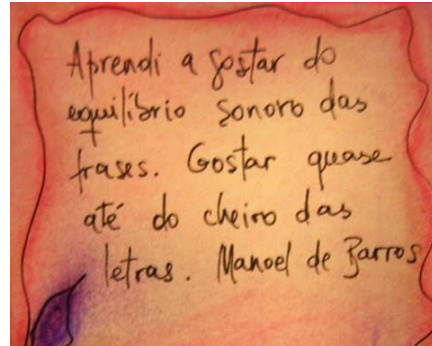 Aprendi a gostar do
equilíbrio sonoro das
frases. Gostar quase
até do cheiro das
letras. Manoel de Barros